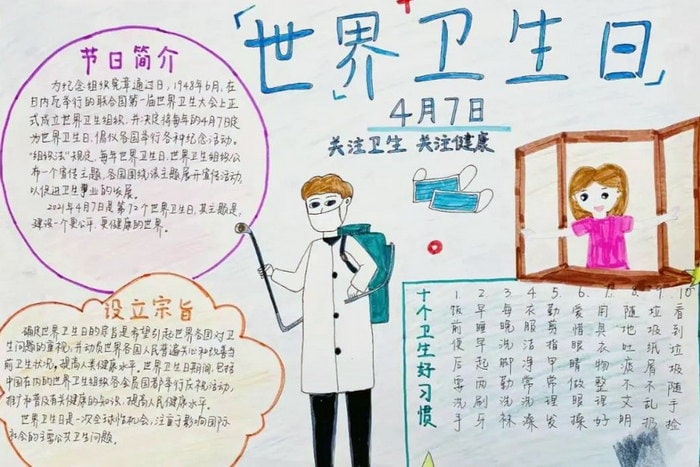 「世界卫生日」
4月7日
关注卫生 关注健康
节日简介
为纪念组织宪章通过日,1948年6月,在
日内瓦举行的联合国第一届世界卫生大会上正
式成立世界卫生组织,并决定将每年的4月7日定
为世界卫生日,倡议各国举行各种纪念活动。
"组织法"规定,每年世界卫生日,世界卫生组织公
布一个宣传主题,各国围绕该主题展开宣传活动,
以促进卫生事业的发展。
2021年4月7日是第72个世界卫生日,其主题是,
建设一个更公平、更健康的世界。
设立宗旨
确定世界卫生日的宗旨是希望引起世界各国对卫
生问题的重视,并动员世界各国人民普遍关心和改善当
前卫生状况,提高人类健康水平。世界卫生日期间,包括
中国在内的世界卫生组织各会员国都举行庆祝活动,
推广和普及有关健康的知识,提高人民健康水平。
世界卫生日是一次全球性机会,注重于影响国际
社会的主要公共卫生问题。
十个卫生好习惯
1.饭前便后要洗手
2.早睡早起两刷牙
3.每晚洗脚勤洗袜
4.衣服洁净常洗澡
5.勤剪指甲常理发
6.爱惜眼睛做眼操
7.用具衣物整理好
8.随地吐痰不文明
9.垃圾纸屑不乱扔
10.看到垃圾随手捡